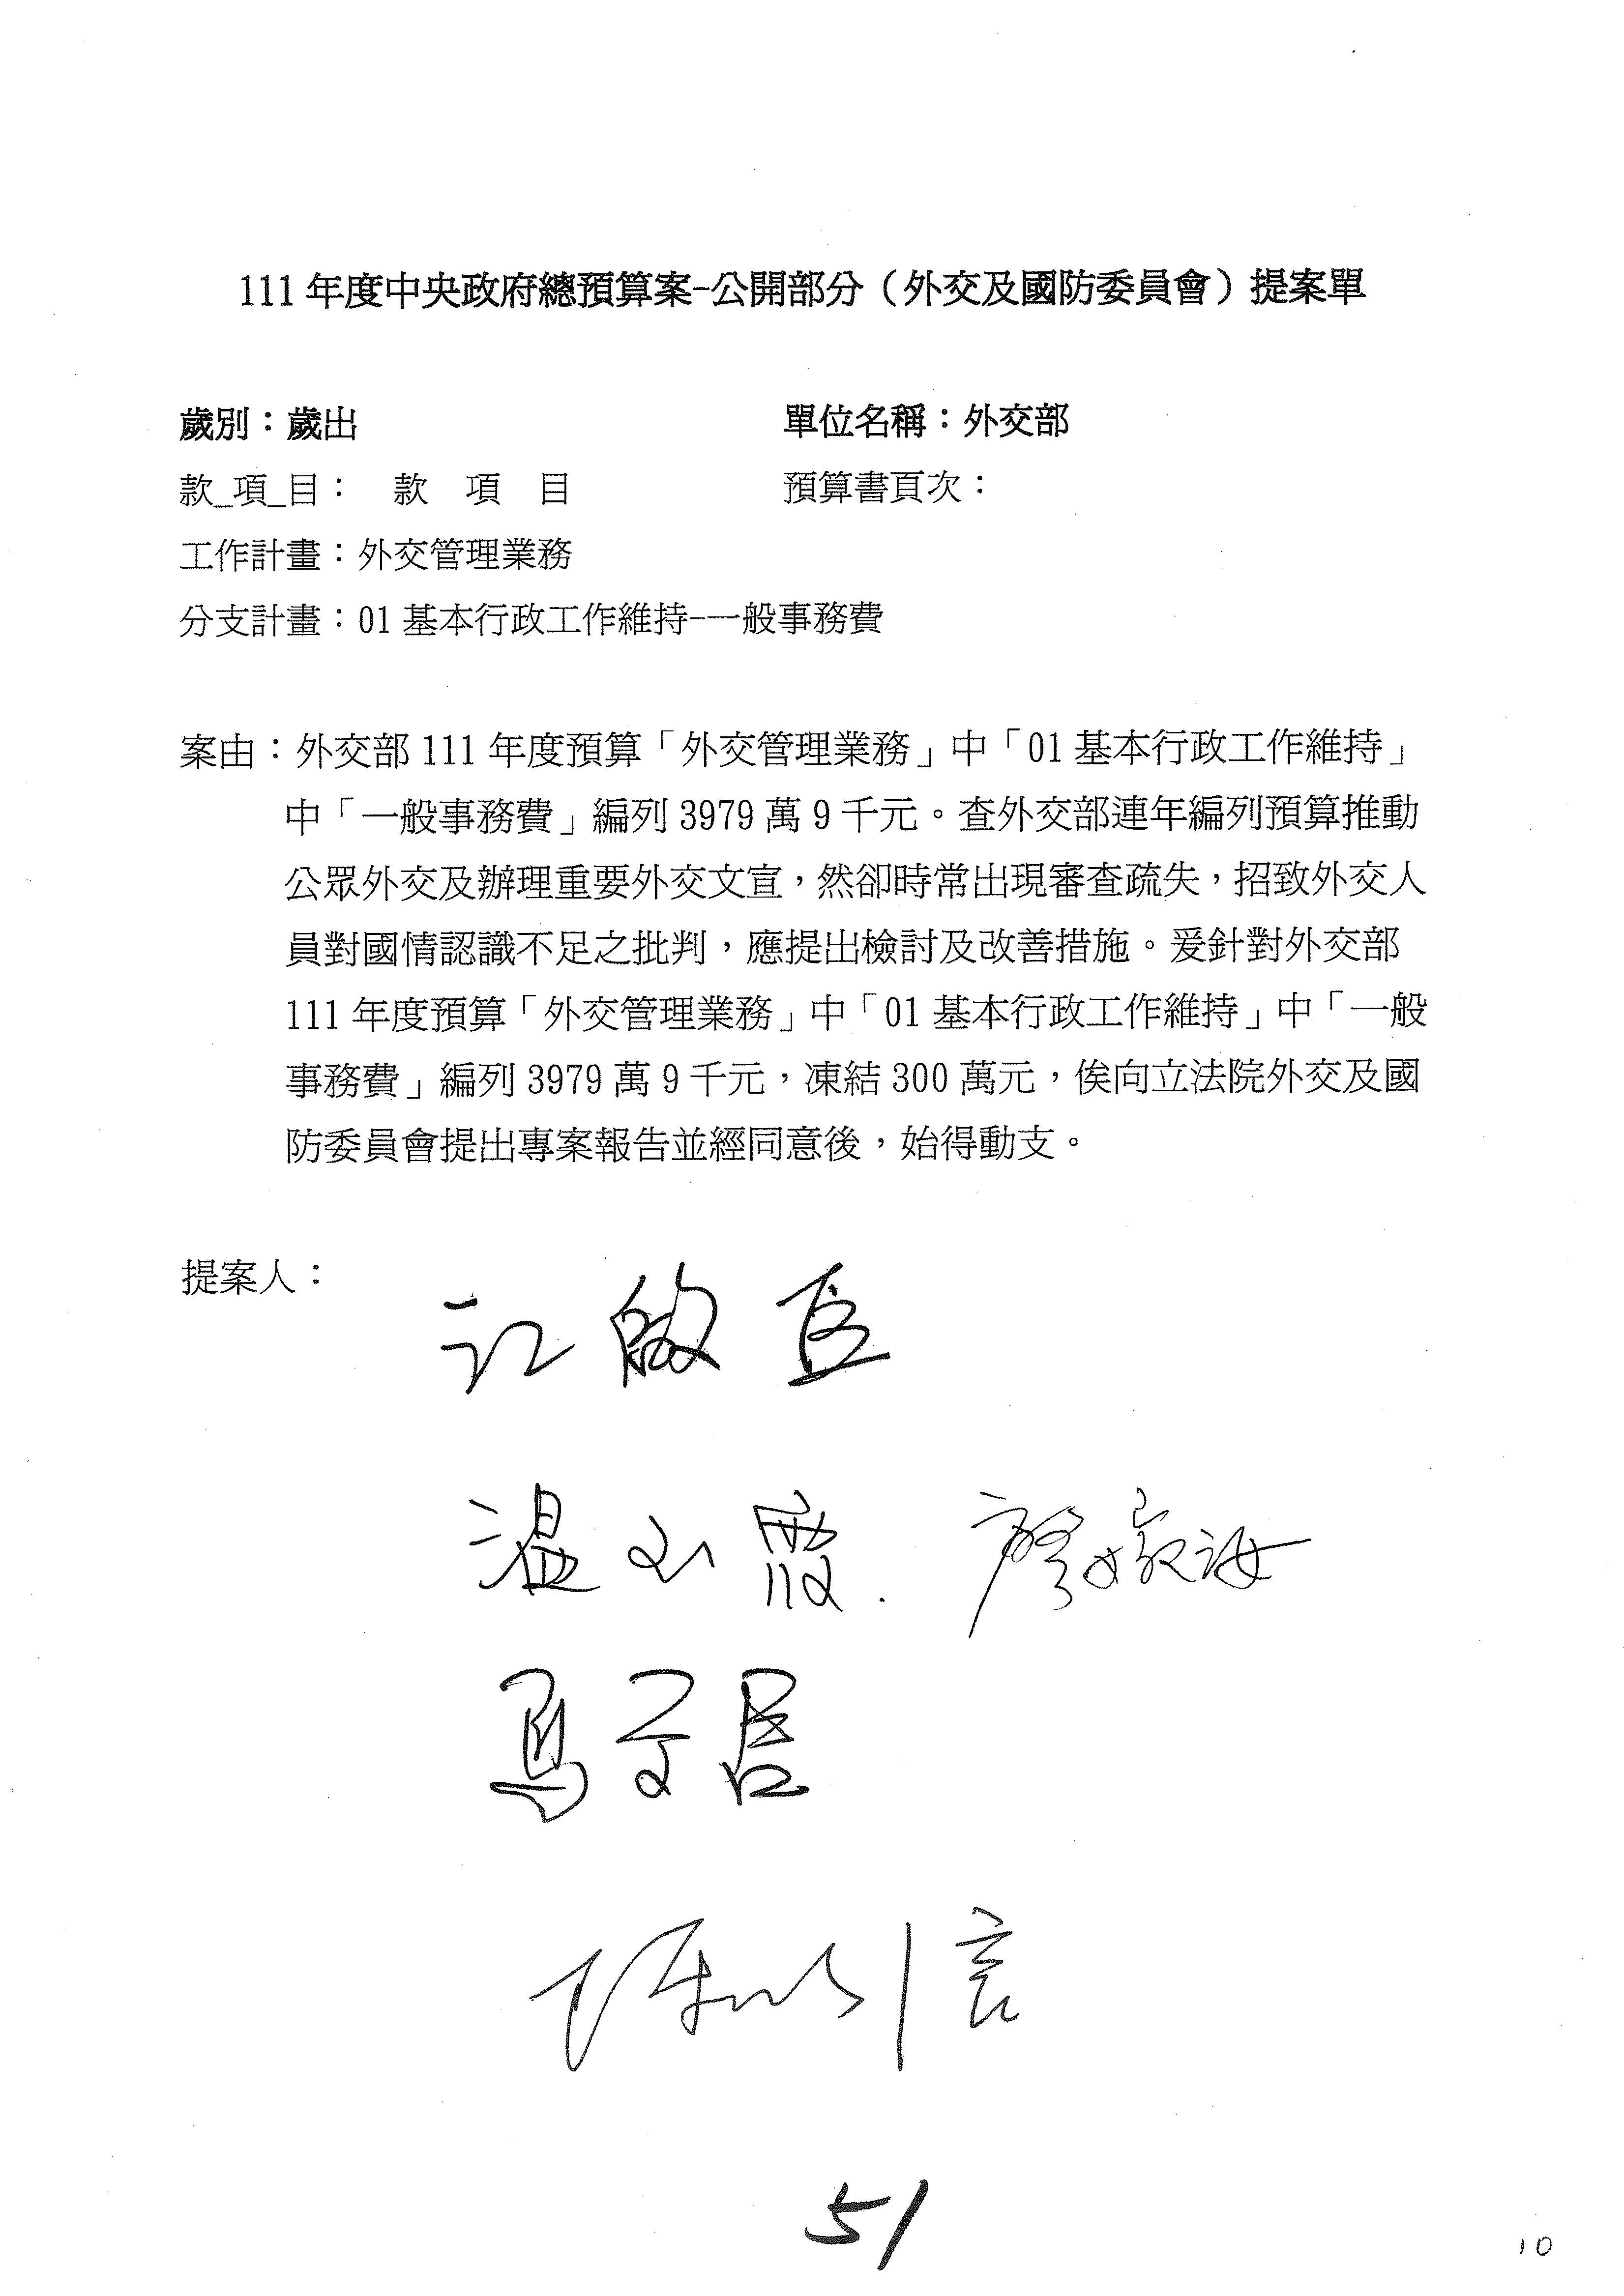 111年度中央政府總預算案-公開部分（外交及國防委員會）提案單
歲別：歲出 單位名稱：外交部
款_項_目： 款 項 目 預算書頁次：
工作計畫：外交管理業務
分支計畫：01基本行政工作維持-一般事務費
案由：外交部111年度預算「外交管理業務」中「01基本行政工作維持」
中「一般事務費」編列3979萬9千元。查外交部連年編列預算推動
公眾外交及辦理重要外交文宣，然卻時常出現審查疏失，招致外交人
員對國情認識不足之批判，應提出檢討及改善措施。爰針對外交部
111年度預算「外交管理業務」中「01基本行政工作維持」中「一般
事務費」編列3979萬9千元，凍結300萬元，俟向立法院外交及國
防委員會提出專案報告並經同意後，始得動支。
提案人：
江啟臣
温玉霞 廖婉汝
馬文君
陳以信
51
10